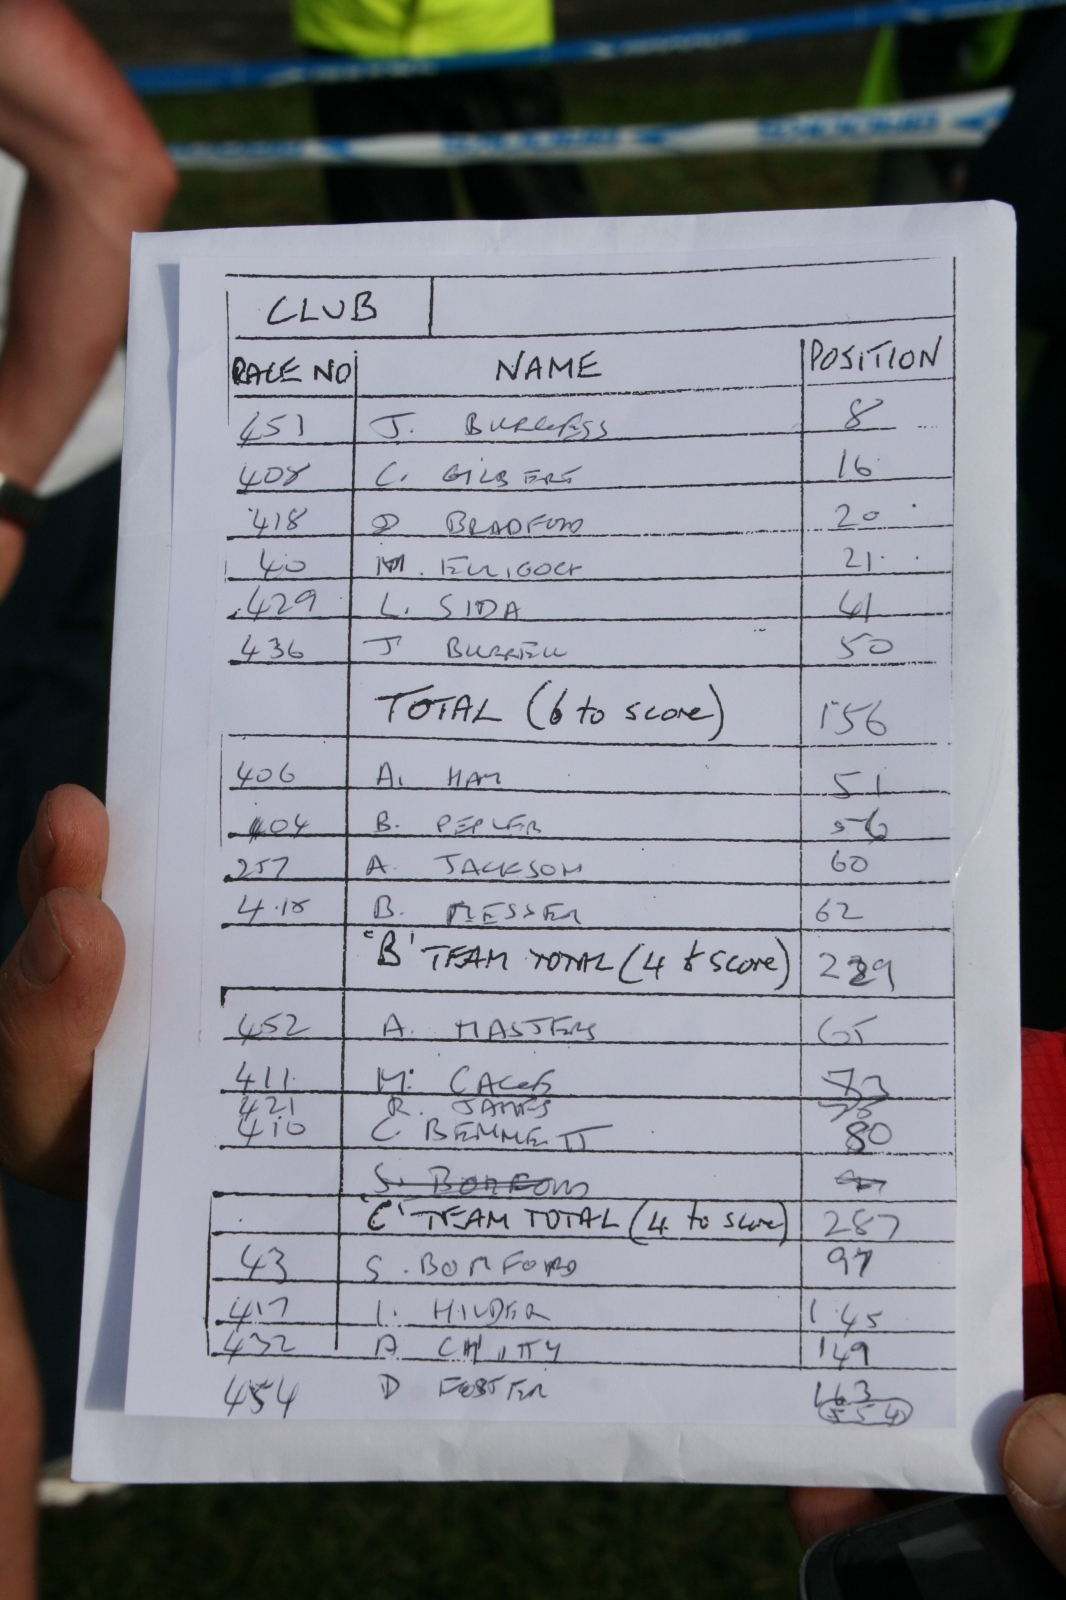 CLUB
RACE NO NAME POSITION
451 J. BURGESS 8
408 C. GILBERT 16
418 D BRADFORD 20
40 M. 21
429 L. SIDA 41
436 J BURRELL 50
TOTAL (6 to score) 156
406 A. HAM 51
404 B. PEPLER 56
257 A. JACKSON 60
B. MESSER 62
'B' TEAM TOTAL (4 to score) 229
452 A. MASTERS 65
411 M.
421 R. JAMES
410 C BENNETT 80
S. BOMFORD
'C' TEAM TOTAL (4 to score) 287
43 S. BOMFORD 97
417 I. HILDER 145
432 D CHITTY 149
454 D FOSTER 163
554